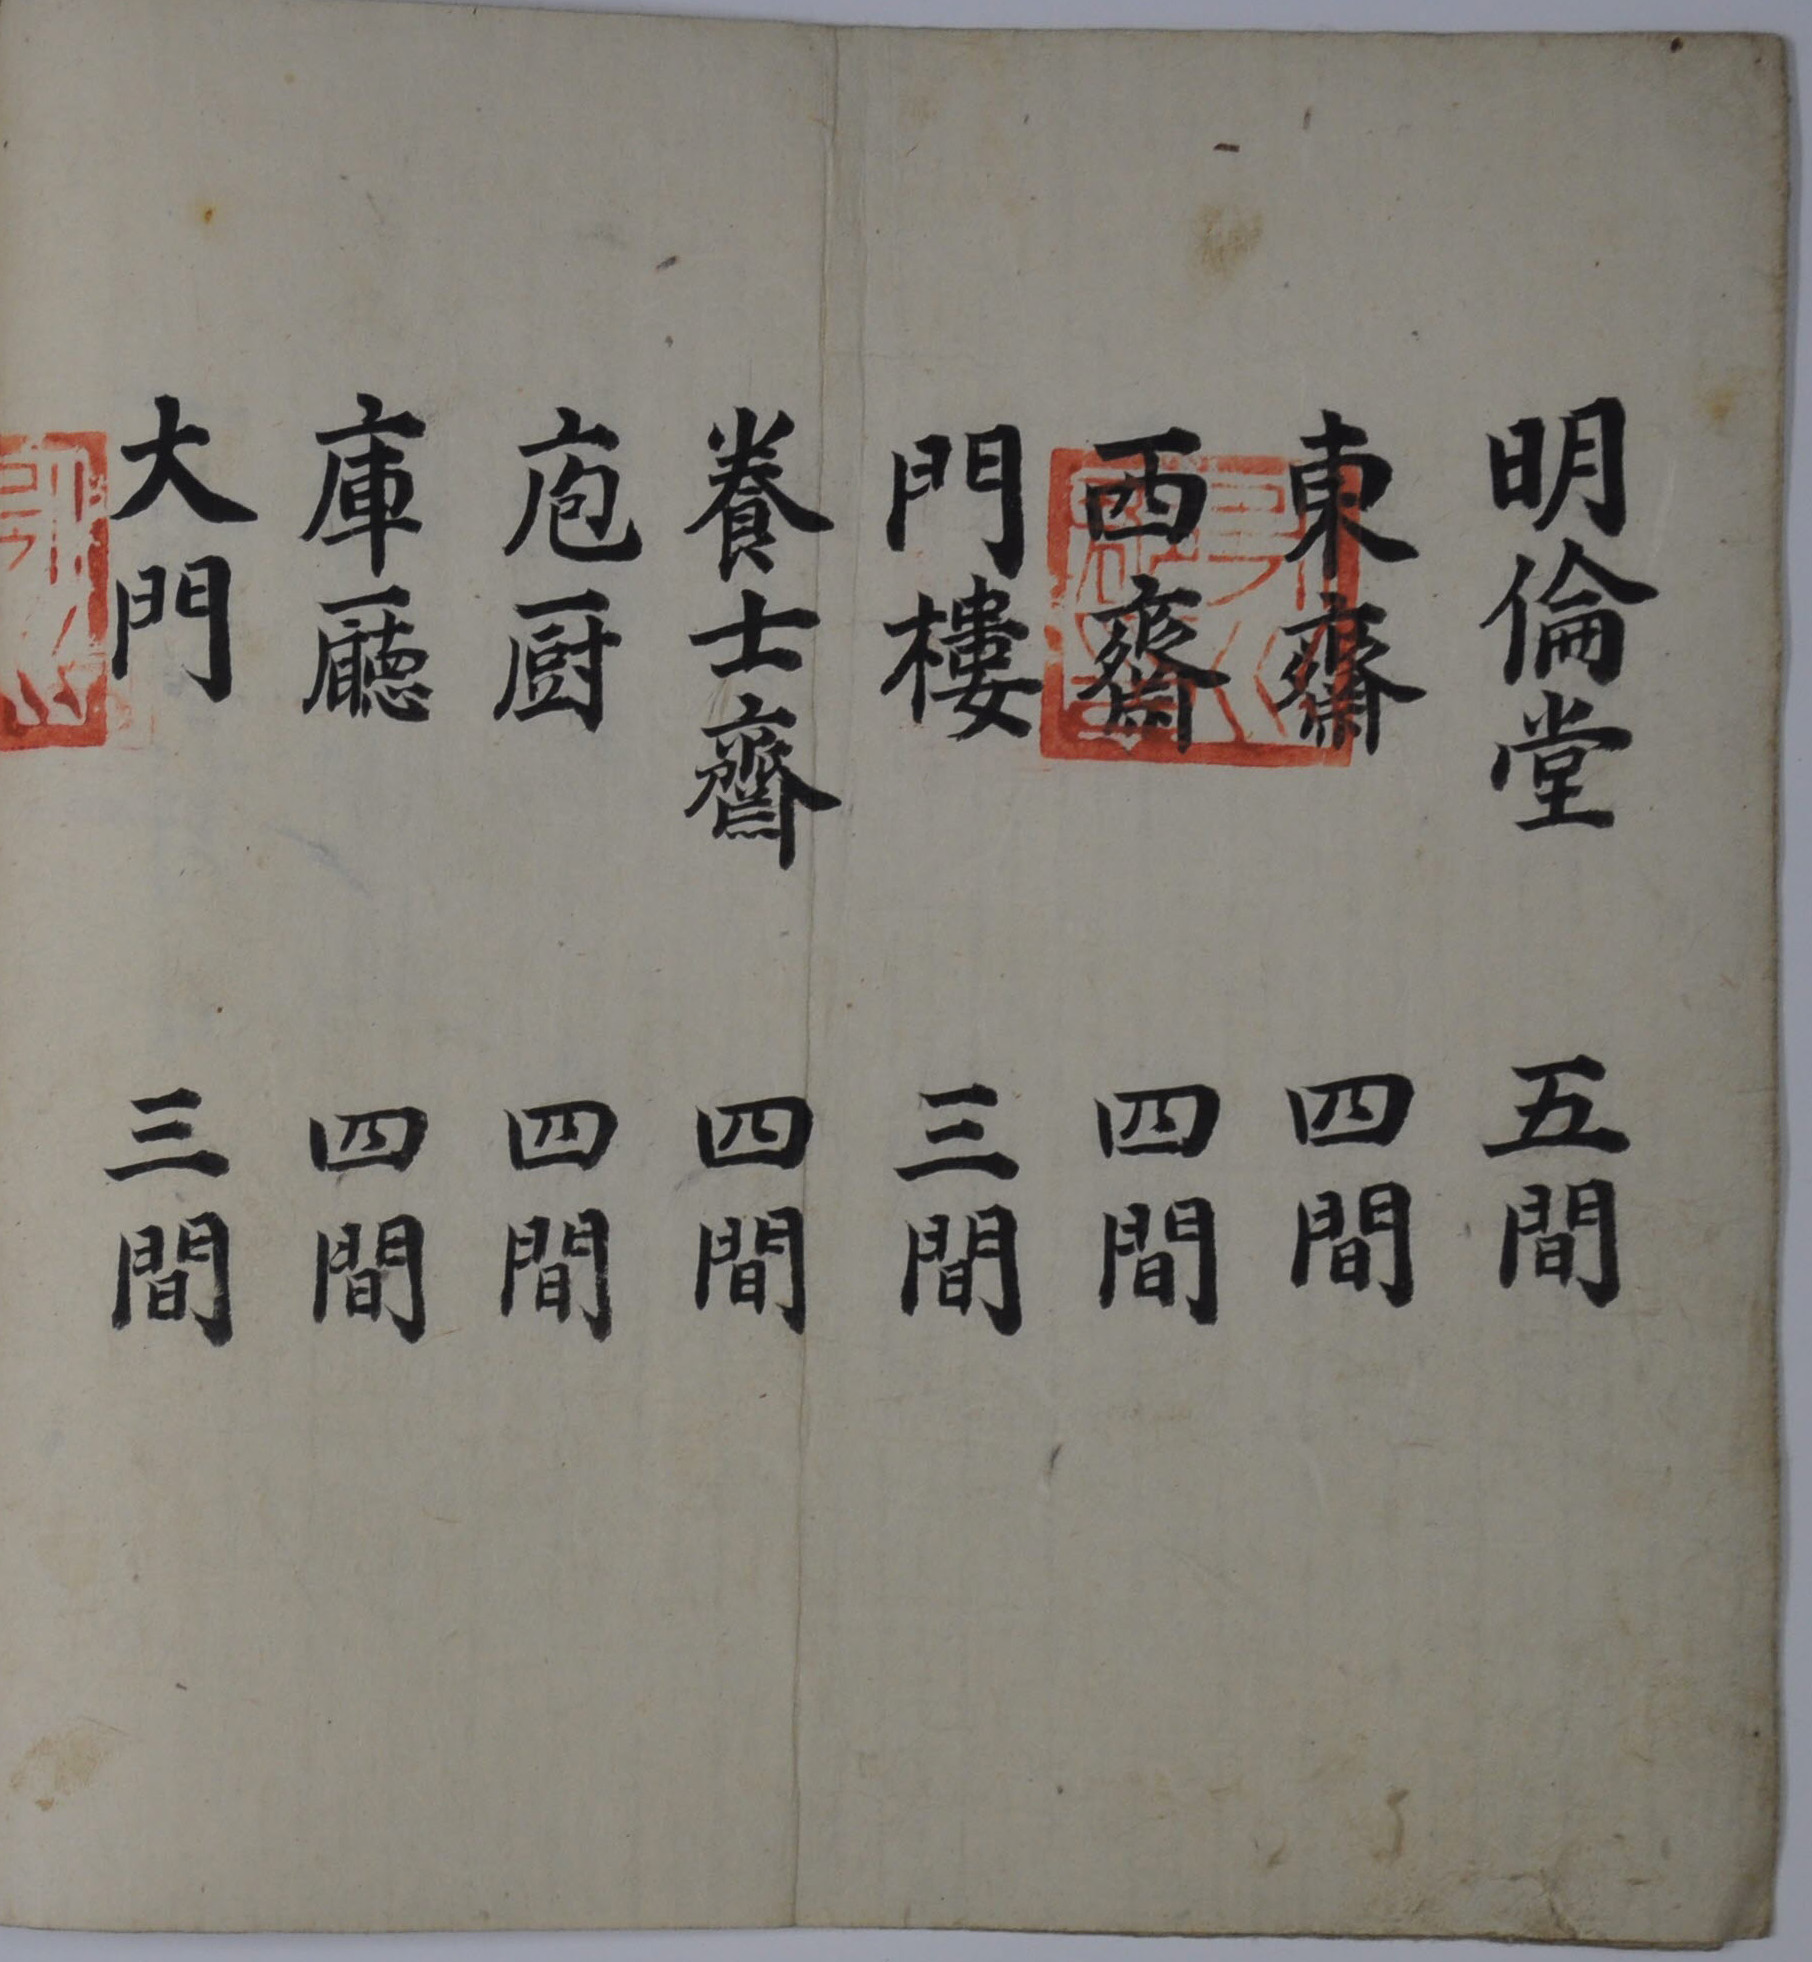 明倫堂 五間
東齋 四間
西齋 四間
門樓 三間
養士齋 四間
庖厨 四間
庫廳 四間
大門 三間